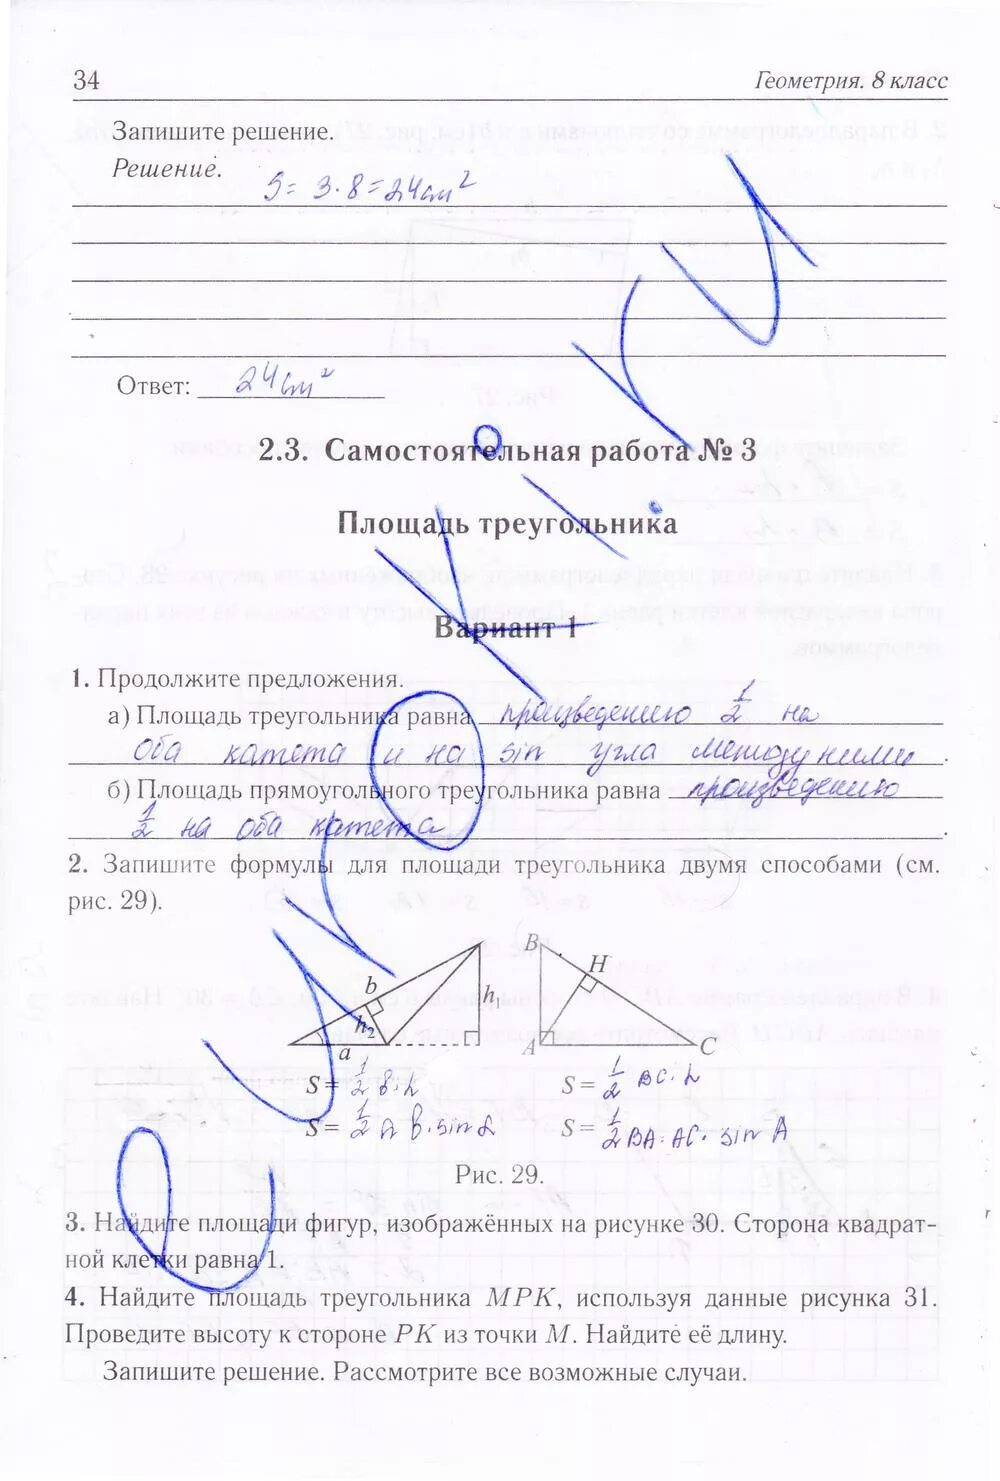 34
Геометрия. 8 класс
Запишите решение.
Решение.
S = 3·8 = 24см²
Ответ: 24см²
2.3. Самостоятельная работа № 3
Площадь треугольника
Вариант 1
1. Продолжите предложения.
а) Площадь треугольника равна произведению 1/2 на
оба катета и на sin угла между ними.
б) Площадь прямоугольного треугольника равна произведению
1/2 на оба катета.
2. Запишите формулы для площади треугольника двумя способами (см.
рис. 29).
b h₂ a h₁
B H A C
S = 1/2
S = 1/2 BC·
S = 1/2
S = 1/2 BA·AC· sin A
Рис. 29.
3. Найдите площади фигур, изображённых на рисунке 30. Сторона квадрат-
ной клетки равна 1.
4. Найдите площадь треугольника MPK, используя данные рисунка 31.
Проведите высоту к стороне PK из точки M. Найдите её длину.
Запишите решение. Рассмотрите все возможные случаи.
eUROKI.RU